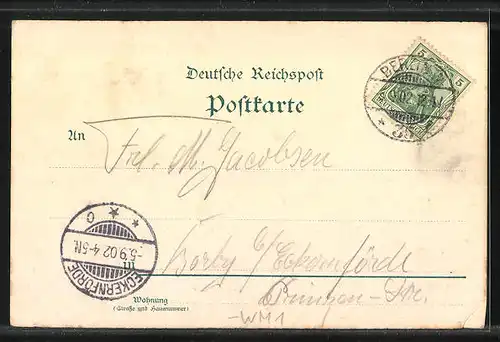 Deutsche Reichspost
Postkarte
An Frl. M. Jacobsen
in Borby b/Eckernförde
Prinzen-Str.
Wohnung
(Straße und Hausnummer)
-WM1
5 5
BERLIN
ECKERNFÖRDE
-5.9.02 4-5N.
* * C